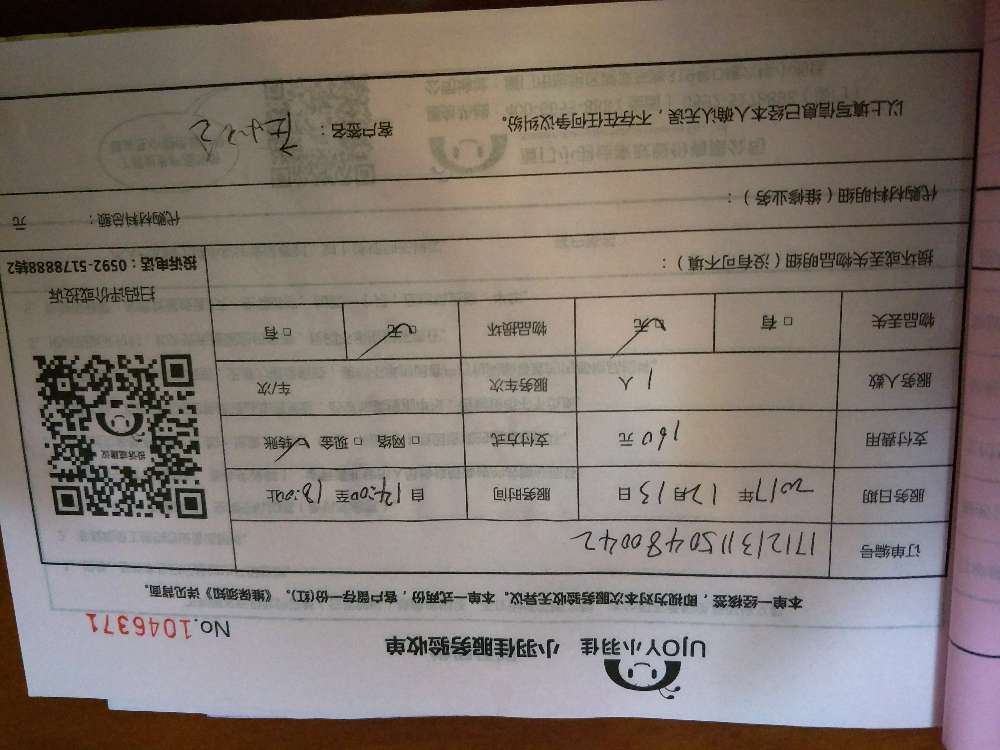 UJOY小羽佳 小羽佳服务验收单
No.1046371
本单一经接签，即视为对本次服务验收无异议。本单一式两份，客户留存一份(红)。《维保须知》详见背面。
订单编号 1712131150480042
服务日期 2017年12月13日 服务时间 自14:00至18:00止
支付费用 160元 支付方式 □网络 □现金 ☑转账
服务人数 1人 服务车次 车/次
物品丢失 □有 ☑无 物品损坏 ☑无 □有
投诉或建议
扫码评价或投诉
投诉电话：0592-5178888转2
损坏或丢失物品明细（没有可不填）：
代购材料明细（维修业务）： 代购材料总额： 元
以上填写信息已经本人确认无误，不存在任何争议纠纷。 客户签名：